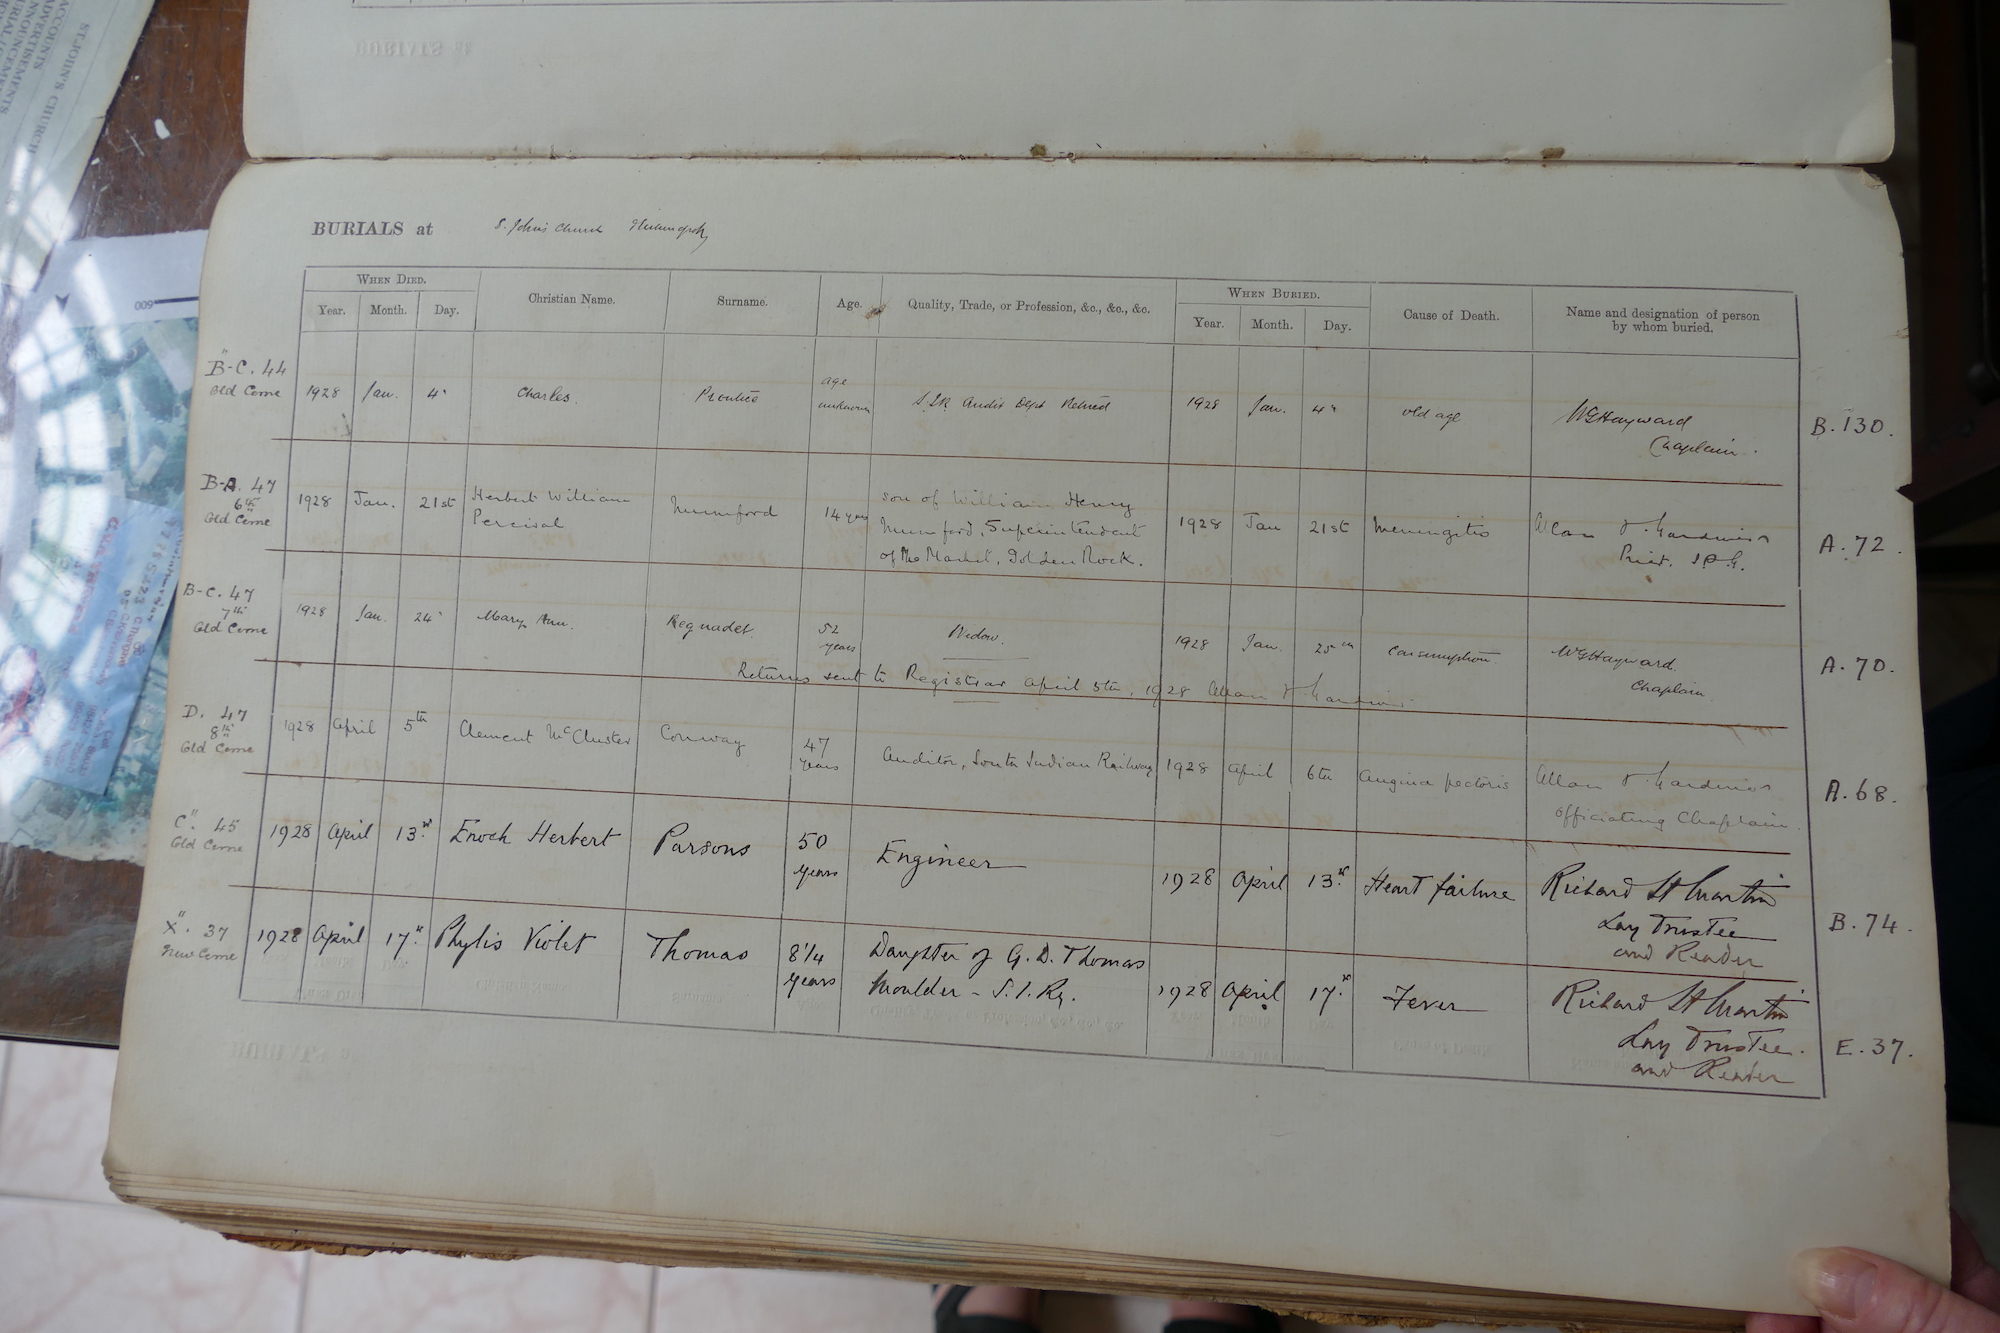 ST. JOHN'S CHURCH
ACCOUNTS
600
BURIALS at S. John's Church
WHEN DIED. Christian Name. Surname. Age. Quality, Trade, or Profession, &c., &c., &c. WHEN BURIED. Cause of Death. Name and designation of person by whom buried.
Year. Month. Day. Year. Month. Day.
B-C. 44
Old Ceme 1928 Jan. 4 Charles. age unknown S.I.R Audit Dept Retired 1928 Jan. 4 old age W G Hayward
Chaplain. B. 130.
B-A. 47
6th
Old Ceme 1928 Jan. 21st Herbert William
Percival Mumford 14 years son of William Henry
Mumford, Superintendent
of the Market, Golden Rock. 1928 Jan 21st Meningitis Allan
Priest. S.P.G. A. 72.
B-C. 47
7th
Old Ceme 1928 Jan. 24 Mary Ann. 52
years Widow. 1928 Jan. 25th Consumption W G Hayward
Chaplain. A. 70.
Returns sent to Registrar April 5th, 1928 Allan
D. 47
8th
Old Ceme 1928 April 5th Clement Conway 47
Years Auditor, South Indian Railway 1928 April 6th Angina pectoris Allan
Officiating Chaplain. A. 68.
C". 45
Old Ceme 1928 April 13 Enoch Herbert Parsons 50
years Engineer 1928 April 13 Heart failure Richard St Martin
Lay Trustee
and Reader B. 74.
X". 37
New Ceme 1928 April 17 Phylis Violet Thomas 8 1/4
years Daughter of G. D. Thomas
Moulder - S. I. Ry. 1928 April 17 Fever Richard St Martin
Lay Trustee.
and Reader E. 37.